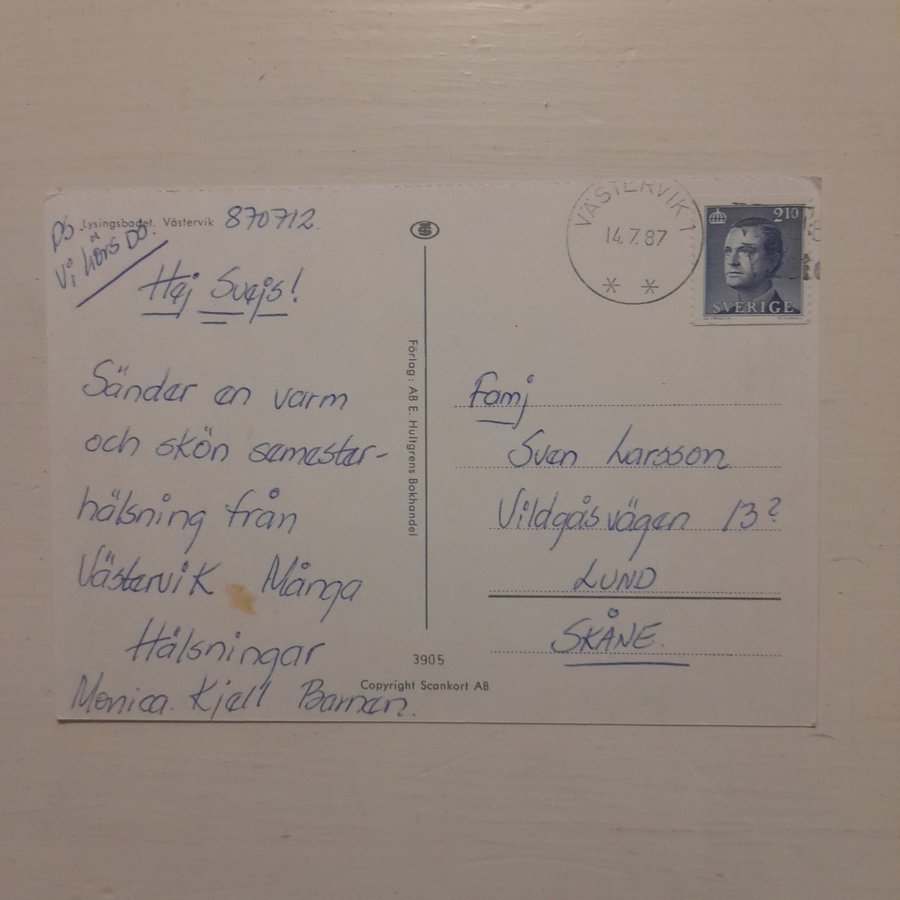 Lysingsbadet. Västervik 870712.
DS.
Vi hörs DS.
Hej Svejs!
Sänder en varm
och skön semester-
hälsning från
Västervik Många
Hälsningar
Monica. Kjell Barnen.
Förlag: AB E. Hultgrens Bokhandel
3905
Copyright Scankort AB
VÄSTERVIK 1
14.7.87
* *
210
SVERIGE
Famj
Sven Larsson
Vildgåsvägen 13?
LUND
SKÅNE.